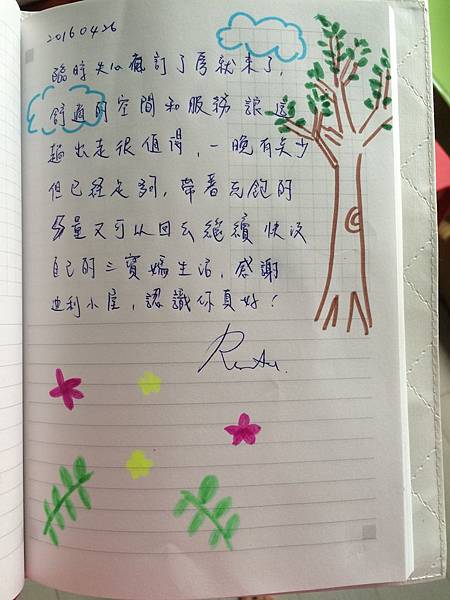 20160426
臨時失心瘋訂了房就來了,
舒適的空間和服務讓這
趟出走很值得,一晚有矣少
但已經足夠,帶著充飽的
能量又可以回去繼續快活
自己的三寶媽生活,感謝
迪利小屋,認識你真好!